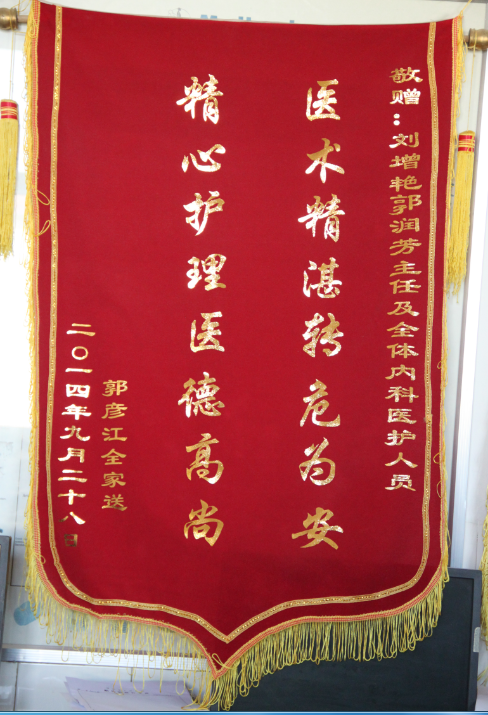 敬赠:刘增艳郭润芳主任及全体内科医护人员
医术精湛转危为安
精心护理医德高尚
郭彦江全家送
二〇一四年九月二十八日